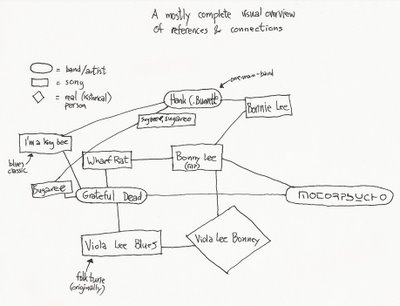 A mostly complete visual overview
of references & connections
= band/artist
= song
= real (historical)
person
one-man-band
Hank C. Burnette
Bonnie Lee
Sugaree, sugaree
I'm a king bee
blues
classic
Wharf Rat
Bonny Lee
Sugaree
Grateful Dead
MOTORPSYCHO
Viola Lee Blues
Viola Lee Bonney
folk tune
(originally)